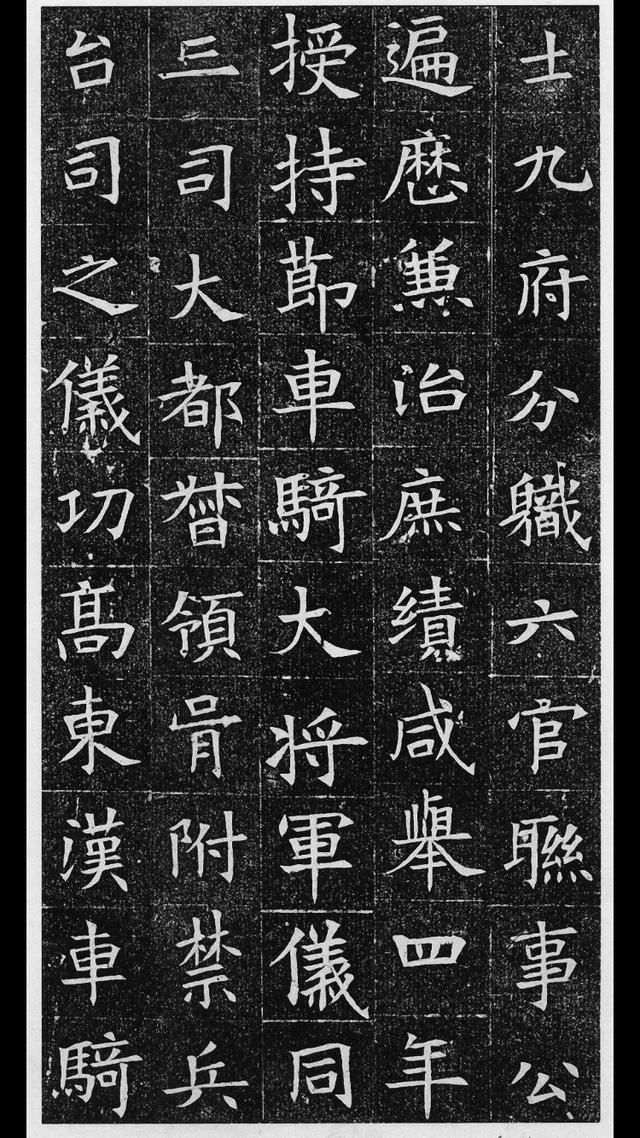 士九府分職六官聯事公
遍歷兼治庶績咸舉四年
授持莭車騎大将軍儀同
三司大都督領胥附禁兵
台司之儀功髙東漢車騎